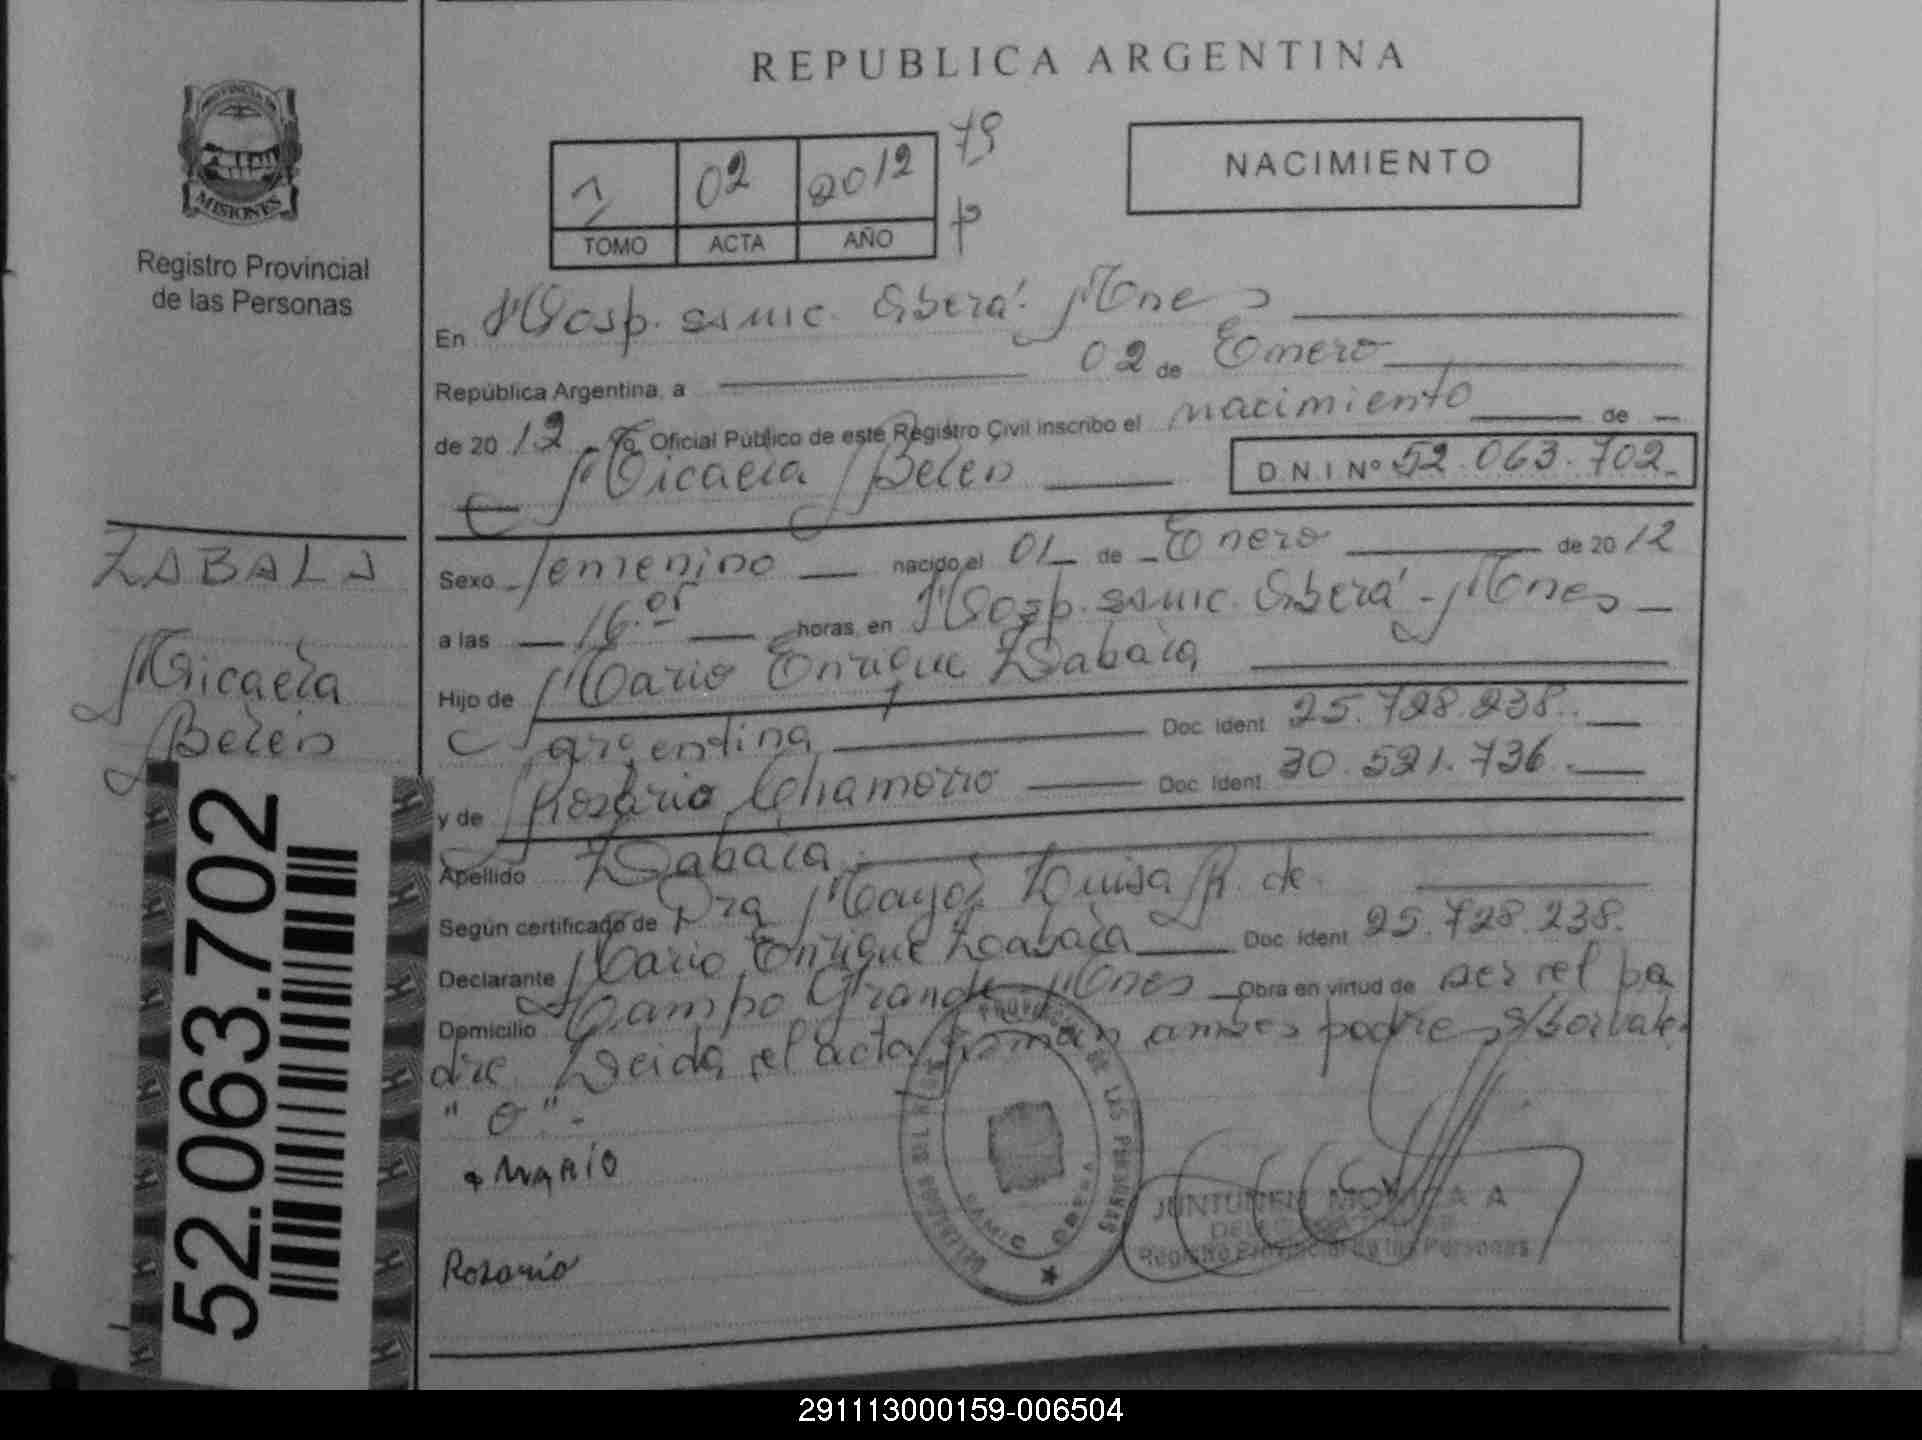 REPUBLICA ARGENTINA
PROVINCIA DE
MISIONES
Registro Provincial
de las Personas
1 02 2012 79
TOMO ACTA AÑO p
NACIMIENTO
En Hosp. ssmic. Oberá. Mnes
República Argentina, a 02 de Enero
de 2012 Yo, Oficial Público de este Registro Civil inscribo el nacimiento de
Micaela Belen D N I Nº 52.063.702
ZABALA
Micaela
Belen
52.063.702
Sexo femenino nacido el 01 de Enero de 2012
a las 16.05 horas, en Hosp. ssmic. Oberá - Mnes
Hijo de Mario Enrique Zabala
argentina Doc. Ident. 25.728.238.
y de Rosario Chamorro Doc. Ident. 30.521.736.
Apellido Zabala
Según certificado de Dra Luisa R. de
Declarante Mario Enrique Zabala Doc. Ident. 25.728.238.
Domicilio Campo Grande Mnes Obra en virtud de ser el pa
dre. Leida el acta firman ambos padres s/borrate
"o".-
MARIO
Rosario
DE LAS PERSONAS
JUNTUNEN MONICA A
Registro Provincial de las Personas
291113000159-006504